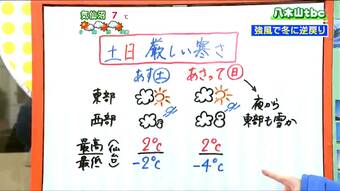 気仙沼 7℃
八木山tbc
強風で冬に逆戻り
土日 厳しい寒さ
あす(土) あさって(日)
東部
夜から
西部
東部も雪か
最高(仙台) 2℃ 2℃
最低 -2℃ -4℃